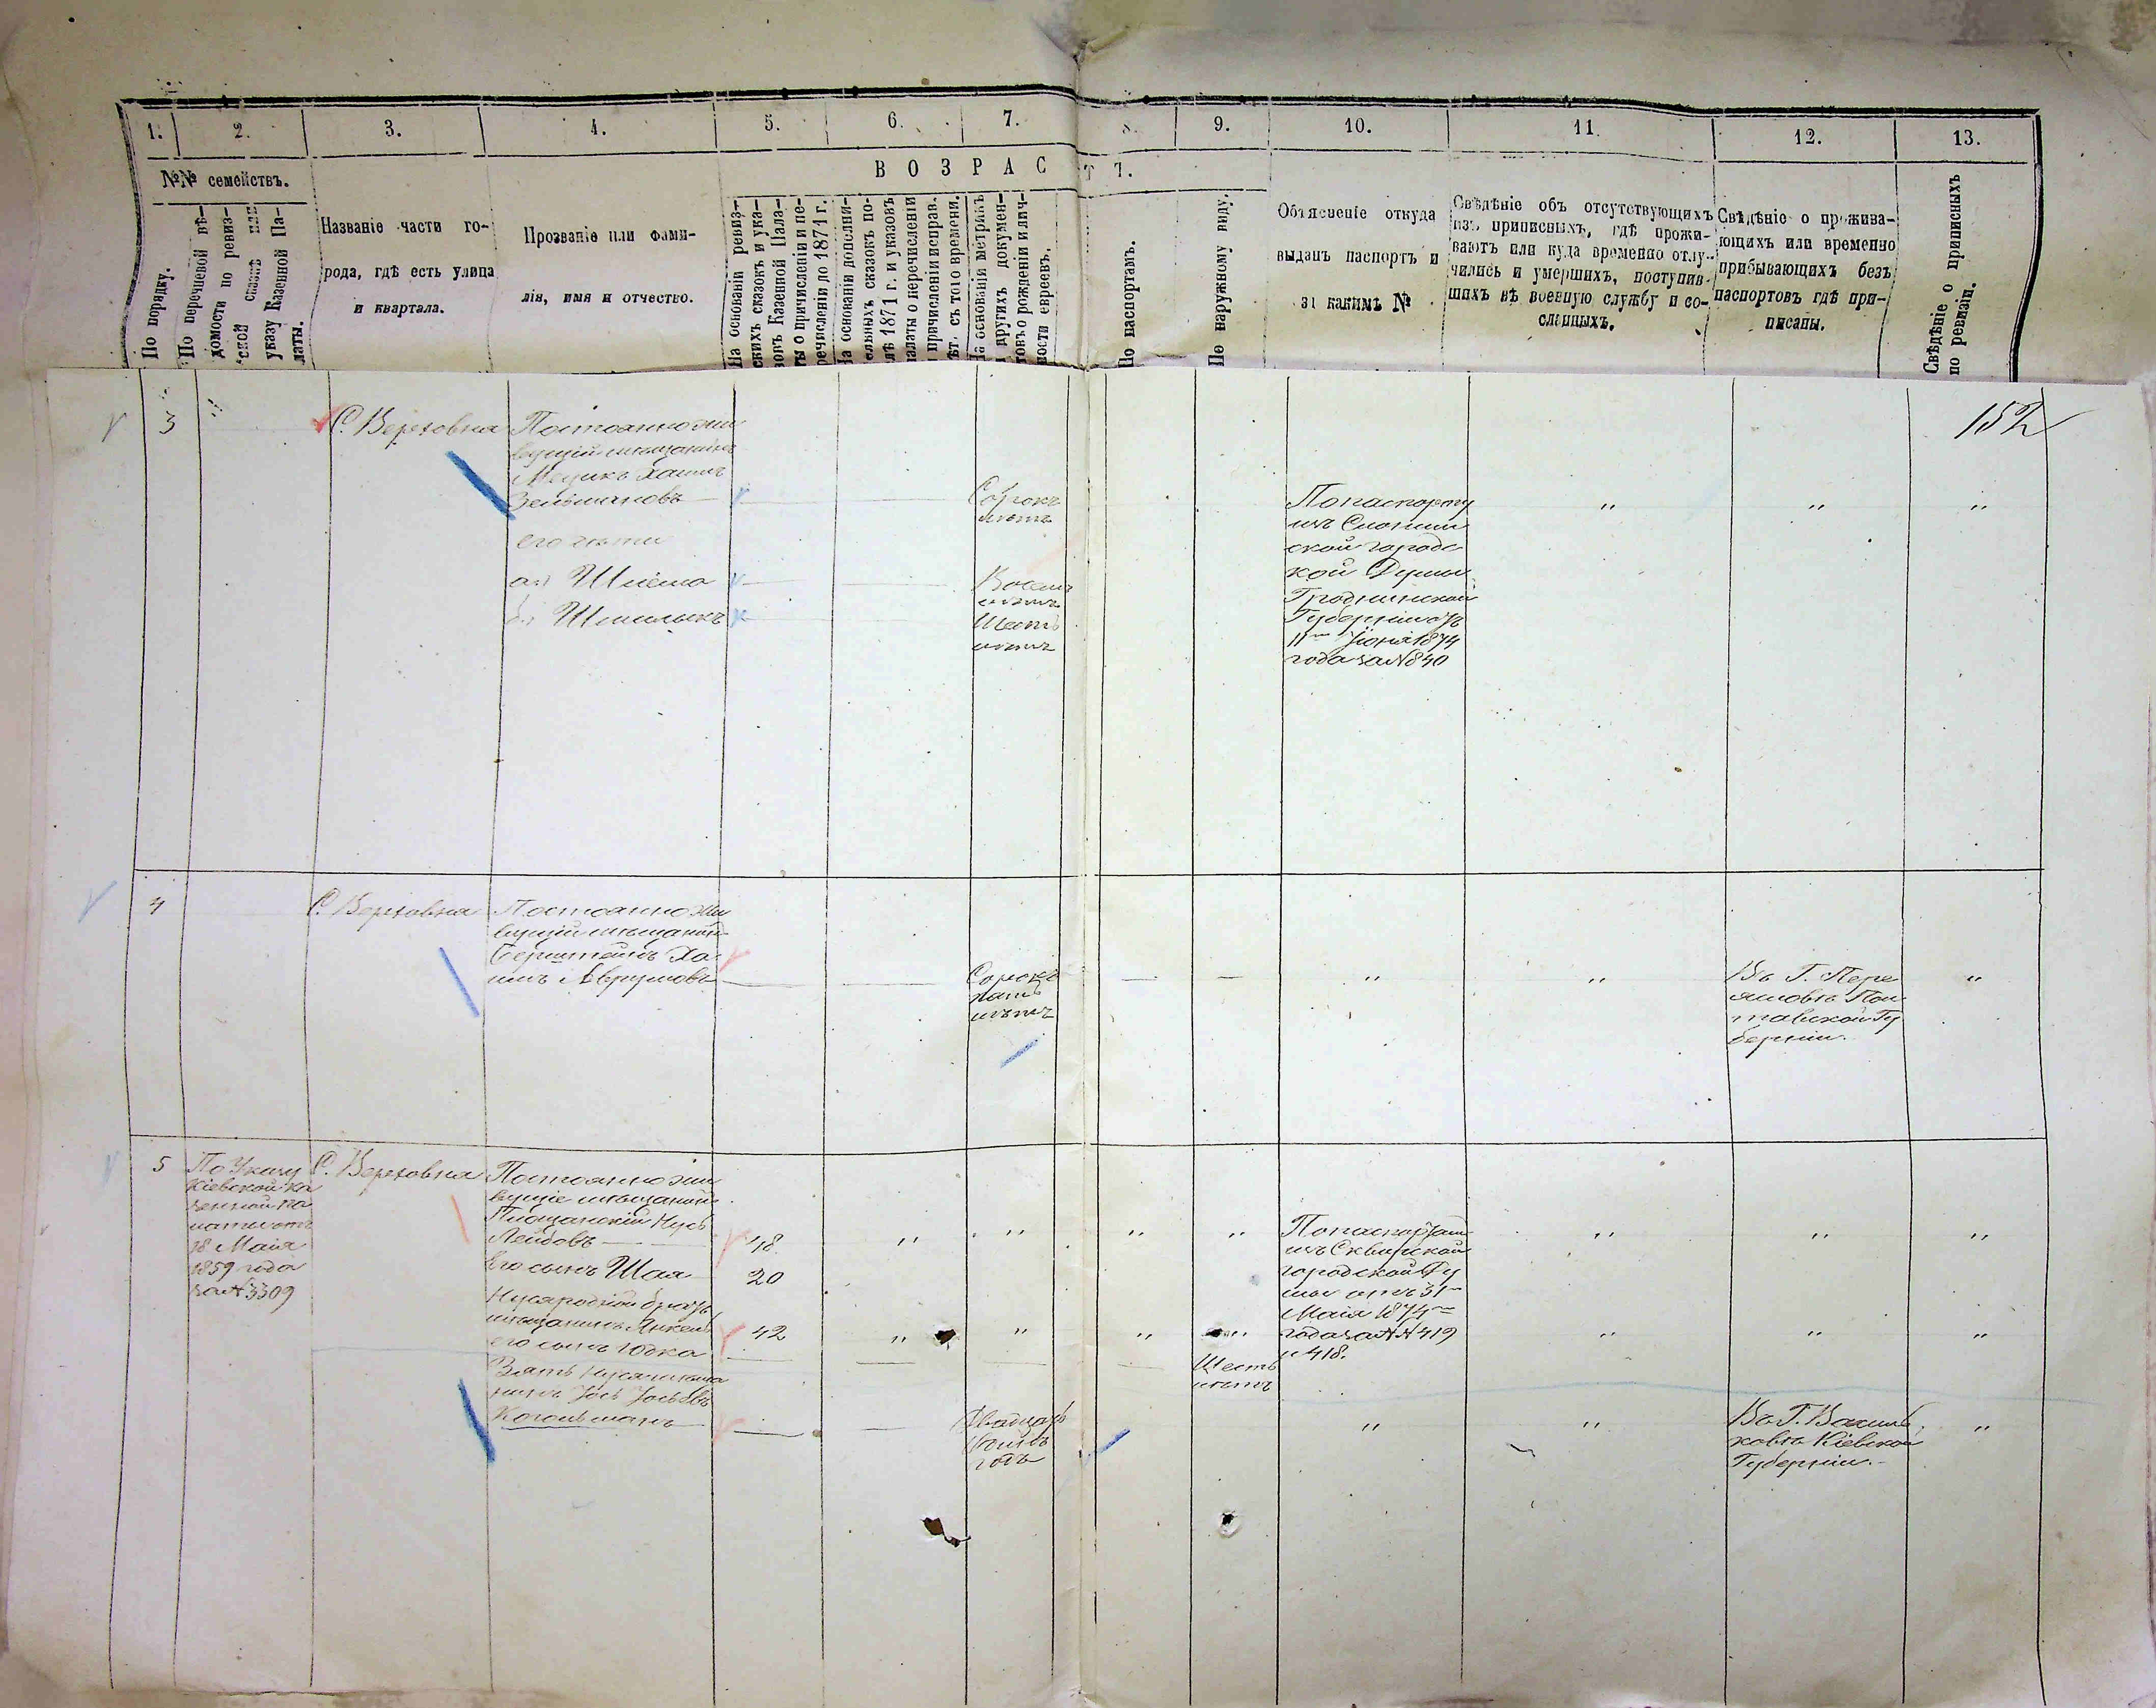 1. 2. 3. 4. 5. 6. 7. 8. 9. 10. 11. 12. 13.
№№ семействъ.
По порядку.
По перечневой вѣ-
домости по ревиз-
ской сказкѣ или
указу Казенной Па-
латы.
Названіе части го-
рода, гдѣ есть улица
и квартала.
Прозваніе или фами-
лія, имя и отчество.
ВОЗРАСТ
На основаніи ревиз-
скихъ сказокъ и ука-
зовъ Казенной Пала-
ты о причисленіи и пе-
речисленіи до 1871 г.
На основаніи дополни-
ельныхъ сказокъ по-
лѣ 1871 г. и указовъ
алаты о перечисленіи
причисленіи исправ.
ѣт. съ того времени.
На основаніи метрикъ
и другихъ докумен-
товъ о рожденіи и лич-
ности евреевъ.
По паспортамъ.
По наружному виду.
Объясненіе откуда
выданъ паспортъ и
за какимъ №
Свѣдѣніе объ отсутствующихъ
изъ приписныхъ, гдѣ прожи-
ваютъ или куда временно отлу-
чились и умершихъ, поступив-
шихъ въ военную службу и со-
сланныхъ.
Свѣдѣніе о прожива-
ющихъ или временно
прибывающихъ безъ
паспортовъ гдѣ при-
писаны.
Свѣдѣніе о приписныхъ
по ревизіи.
152
3
С. Верховня
Постоянно жи
вущій мѣщанинъ
Мецикъ Хаимъ
Зельмановъ
Сорокъ
лѣтъ
его дѣти
а) Шлёма
Восемь
лѣтъ
б) Шмилыкъ
Шесть
лѣтъ
По паспорту
изъ Слоним
ской городс
кой Думы
Гродненской
Губерніи отъ
11го Іюня 1874
года за № 840
4
С. Верховня
Постоянно жи
вущій мѣщанинъ
Бернштейнъ Ха
имъ Аврумовъ
Сорокъ
пять
лѣтъ
Въ Г. Пере
яславѣ Пол
тавской Гу
берніи.
5
По Указу
Кіевской ка
зенной па
латы отъ
18 Маія
1859 года
за № 3309
С. Верховня
Постоянно жи
вущіе мѣщанинъ
Площанскій Нусь
Лейбовъ
48
Его сынъ Шая
20
Нуся родной братъ
мѣщанинъ Янкель
42
его сынъ Юдка
Шесть
лѣтъ
Зять Нуся мѣща
нинъ Іось Іосьовъ
Когольманъ
Двадцать
годъ
По паспортамъ
изъ Сквирской
городской Ду
мы отъ 31го
Маія 1874го
года за №№ 419
и 418.
Въ Г. Василь
ковѣ Кіевской
Губерніи.